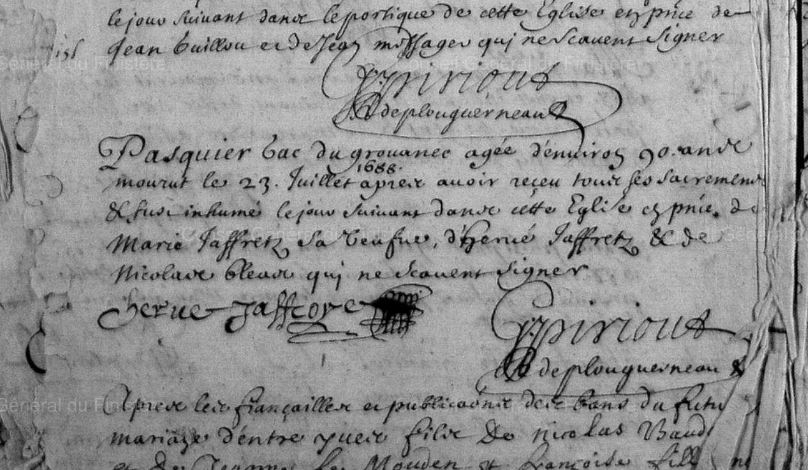 le jour suivant dans le portique de cette Eglise en pnce de
Jean Guillou et de Jean messager qui ne scavent signer
G piriout
R deplouguerneau
Pasquier bac du grouanec agée d'environ 90. ans
mourut le 23. Juillet 1688. apres avoir reçeu tous ses sacremens
& fust inhumé le jour suivant dans cette Eglise en pnce. de
Marie Jaffretz sa veufue, d'hervé Jaffretz & de
Nicolas bleas qui ne scavent signer
herve Jaffrerz
G piriout
R deplouguerneau
Apres les fiançailles et publications des bans du futur
mariage d'entre yves fils de nicolas
et de Jeanne Le Mouden et françoise fille